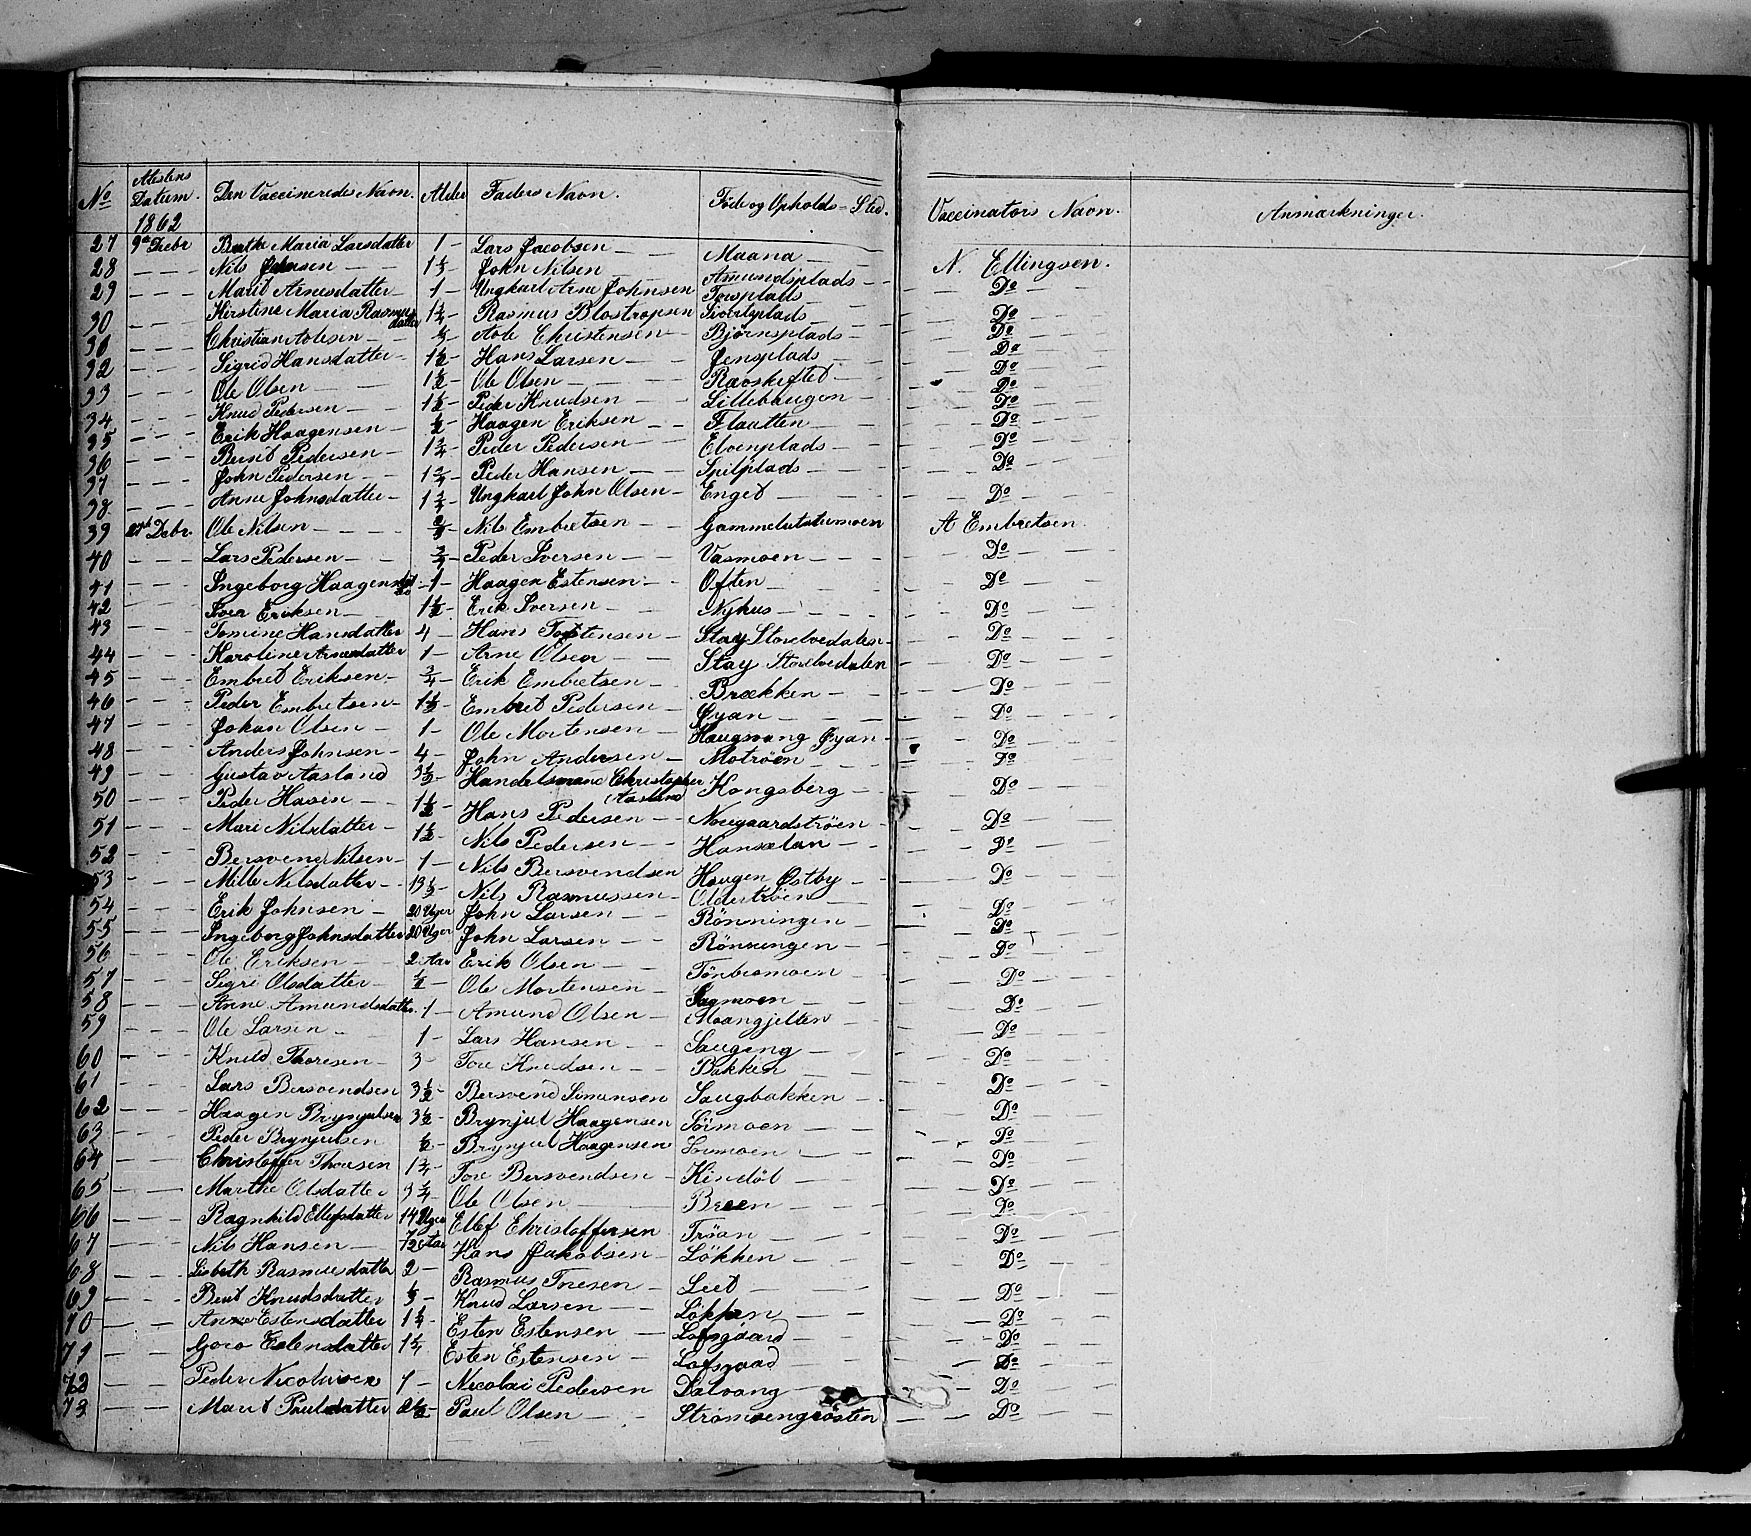 No | Attestens Datum. 1862 | Den Vaccineredes Navn. | Alder | Faders Navn. | Føde og Opholds-Sted. | Vaccinators Navn. | Anmærkninger.
27 | 9de Decbr | Berthe Maria Larsdatter | 1 - | Lars Jacobsen | Maana | N. Ellingsen.
28 | Nils Johnsen | John Nilsen | Amundsplads | Do
29 | Marit Arnesdatter | 1 - | Ungkarl Arne Johnsen | Torsplads | Do
30 | Kirstine Maria Rasmusdatter | 1 1/4 | Rasmus Blostrupsen | Do
31 | Christian | Christensen | Bjørnsplads | Do
32 | Sigrid Hansdatter | 1 1/2 | Hans Larsen | Jensplads | Do
33 | Ole Olsen | 1 1/2 | Ole Olsen | Ravskiftet | Do
34 | Knud Pedersen | 1 1/2 | Peder Knudsen | Lillehaugen | Do
35 | Erik Haagensen | 1/2 | Haagen Eriksen | Flaatten | Do
36 | Bernt Pedersen | Peder Pedersen | Elvenplads | Do
37 | John Pedersen | Peder Hansen | Spilplads | Do
38 | Anne Johnsdatter | Ungkarl John Olsen | Enget | Do
39 | Decbr. | Ole Nilsen | Nils Embretsen | Gammelutstumoen | A Embretsen.
40 | Lars Pedersen | 3/4 | Peder Iversen | Vasmoen | Do
41 | Ingeborg Haagensdat | 1 - | Haagen Estensen | Often | Do
42 | Iver Eriksen | 1 1/2 | Erik Iversen | Nyhus | Do
43 | Tomine Hansdatter | 4 - | Hans Tostensen | Stay Storelvedalen | Do
44 | Karoline Arnesdatter | 1 - | Arne Olsen | Stay Storelvedalen | Do
45 | Embret Eriksen | 3/4 | Erik Embretsen | Brækken | Do
46 | Peder Embretsen | 1 1/2 | Embret Pedersen | Øyan | Do
47 | Johan Olsen | 1 - | Ole Mortensen | Haugvang Øyan | Do
48 | Anders Johnsen | 4 - | John Andersen | Motrøen | Do
49 | Gustav Aasland | 3 1/2 | Handelsmand Christopher Aasland | Kongsberg | Do
50 | Peder Hasen | 1 1/2 | Hans Pedersen | Neugaardstrøen | Do
51 | Mari Nilsdatter | 1 1/2 | Nils Pedersen | Hanselan | Do
52 | Bersvend Nilsen | 1 - | Nils Bersvendsen | Haugen Østby | Do
53 | Mille Nilsdatter | Nils Rasmussen | Oldertrøen | Do
54 | Erik Johnsen | 20 Uger | John Larsen | Rønningen | Do
55 | Ingeborg Johnsdatter | 20 Uger | John Larsen | Rønningen | Do
56 | Ole Eriksen | 2 Aar | Erik Olsen | Tønbesmoen | Do
57 | Sigri Olsdatter | 1/2 | Ole Mortensen | Sagmoen | Do
58 | Anne Amundsdatter | 1 - | Amund Olsen | Moangjelten | Do
59 | Ole Larsen | 1 | Lars Hansen | Sauging | Do
60 | Knud Thoresen | 3 - | Tore Knudsen | Bakken | Do
61 | Lars Bersvendsen | 3 1/2 | Bersvend Simensen | Saugbakken | Do
62 | Haagen Brynjulsen | 3 1/2 | Brynjul Haagensen | Sørmoen | Do
63 | Peder Brynjulsen | 1/2 | Brynjul Haagensen | Sørmoen | Do
64 | Christoffer Thoresen | 1 3/4 | Tore Bersvendsen | Kindøl | Do
65 | Marthe Olsdatter | Ole Olsen | Breen | Do
66 | Ragnhild Ellefsdatter | 14 Uger | Ellef Christoffersen | Trøan | Do
67 | Nils Hansen | 7/12 Aar | Hans Jakobsen | Løkken | Do
68 | Lisbeth Rasmusdatter | 2 - | Rasmus | Leet | Do
69 | Berit Knudsdatter | Knud Larsen | Løkken | Do
70 | Anne Estensdatter | 1 1/4 | Esten Estensen | Lofsgaard | Do
71 | Goro Estensdatter | 1 1/4 | Esten Estensen | Lofsgaad | Do
72 | Peder Nicolaisen | 1 - | Nicolai Pedersen | Dalvang | Do
73 | Marit Paulsdatter | 2 1/2 | Paul Olsen | Strømoengrøsten | Do